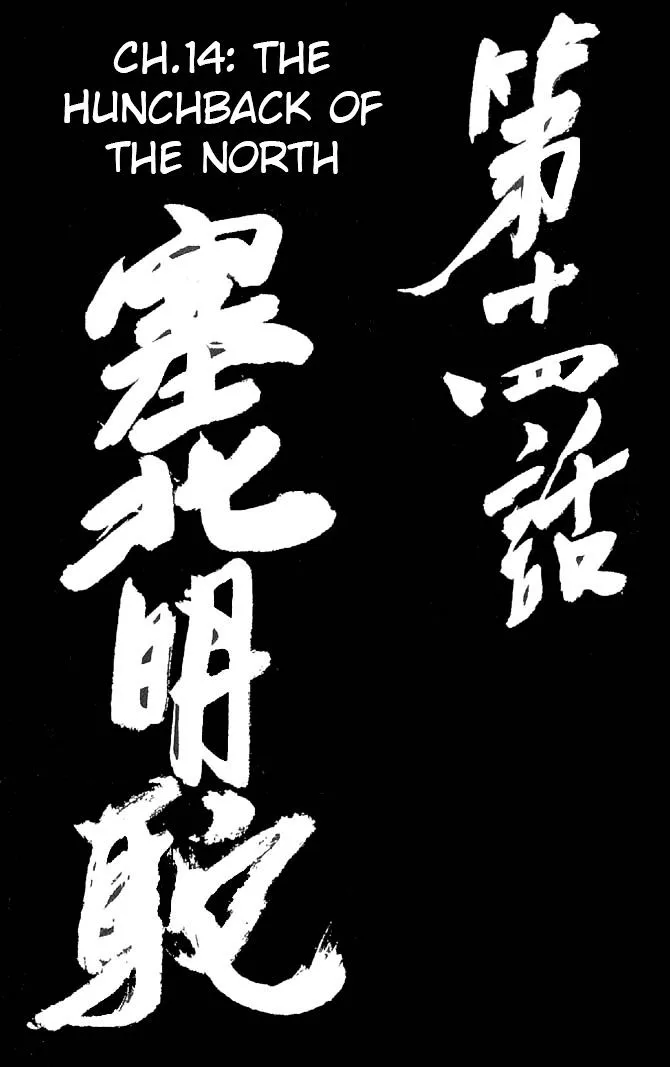 CH.14: THE
HUNCHBACK OF
THE NORTH
第十四話
塞北明駝